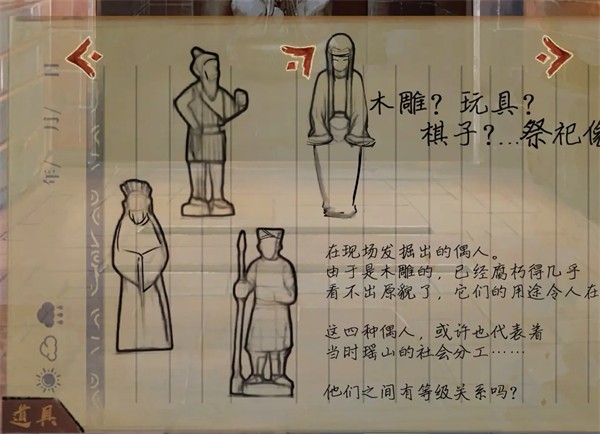 木雕？玩具？
棋子？...祭祀
在现场发掘出的偶人。
由于是木雕的，已经腐朽得几乎
看不出原貌了，它们的用途令人在
这四种偶人，或许也代表着
当时瑶山的社会分工……
他们之间有等级关系吗？
年/ 月/ 日
道具